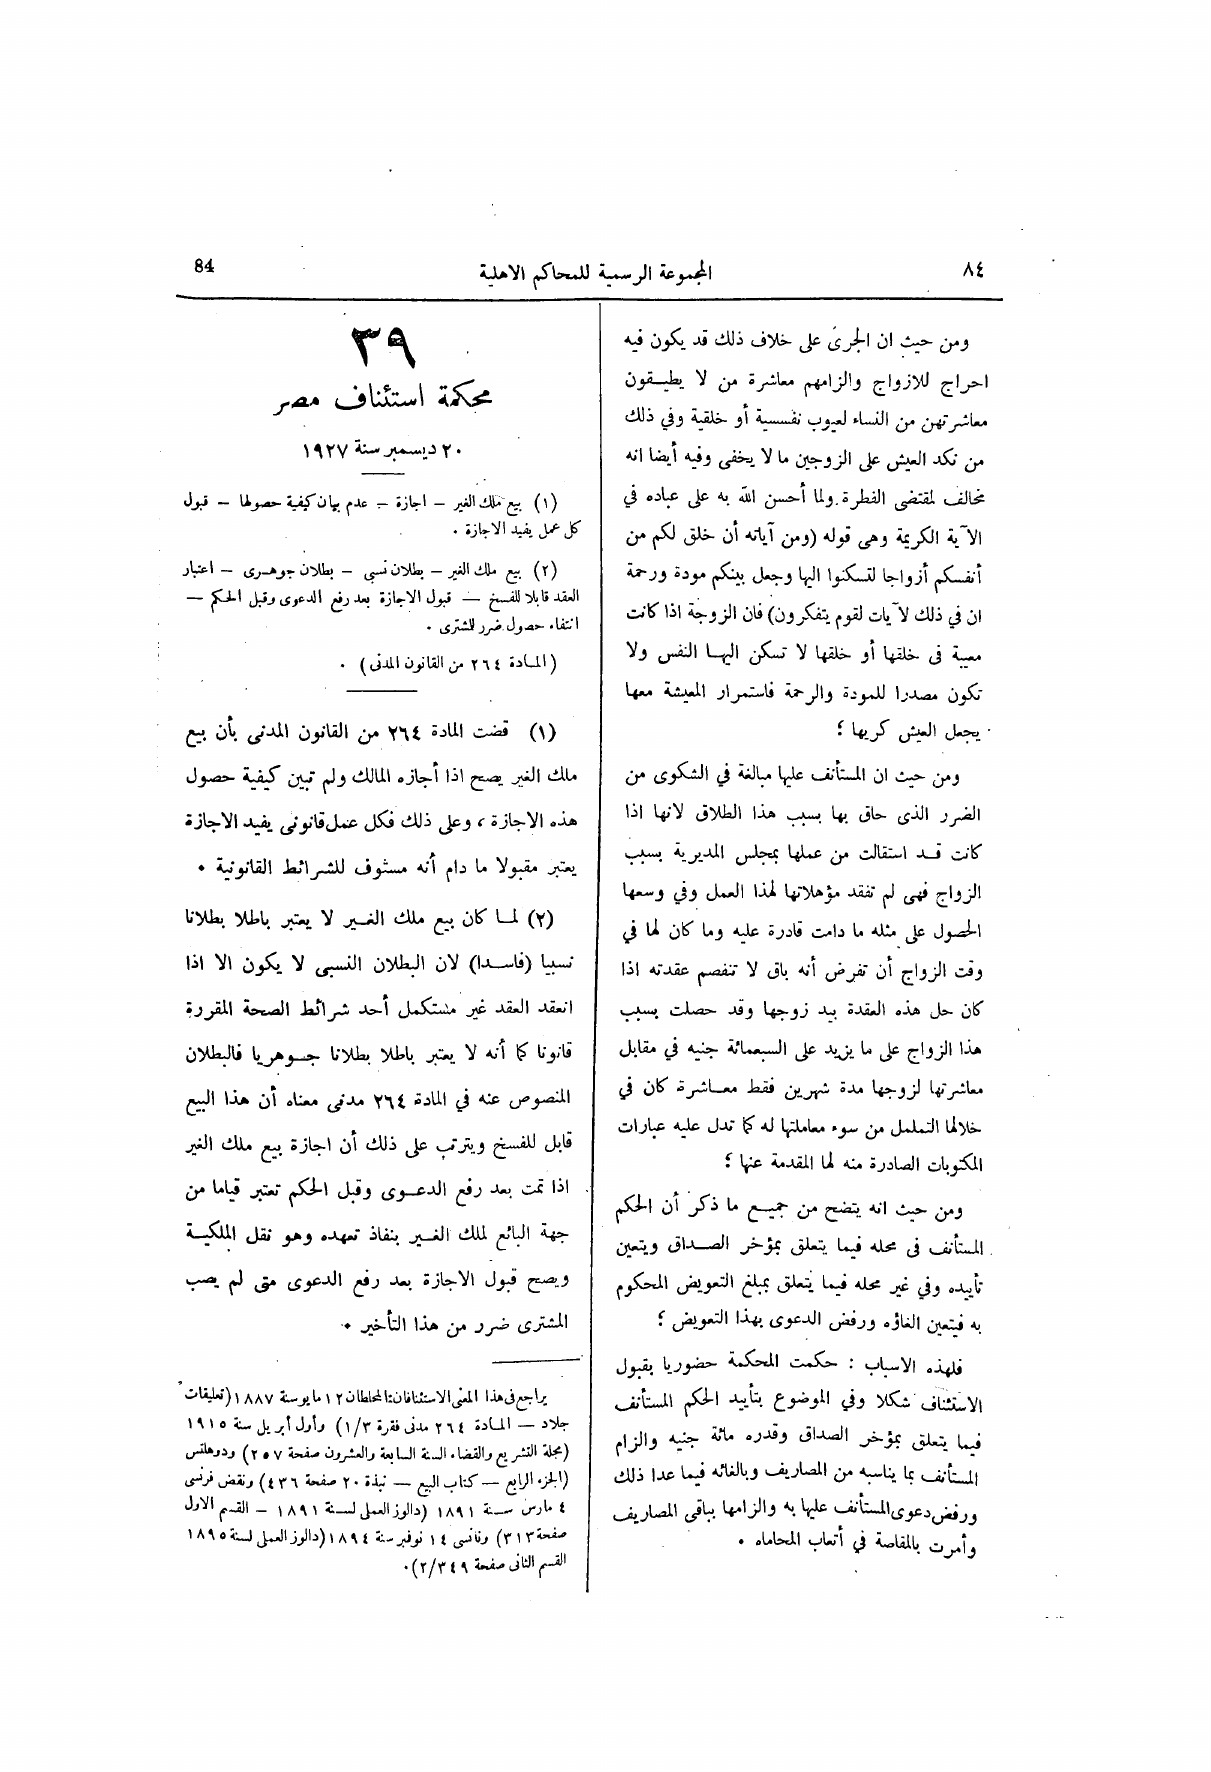 ٨٤
المجموعة الرسمية للمحاكم الاهلية
84
ومن حيث ان الجرى على خلاف ذلك قد يكون فيه
احراج للازواج والزامهم معاشرة من لا يطيقون
معاشرتهن من النساء لعيوب نفسية أو خلقية وفي ذلك
من نكد العيش على الزوجين ما لا يخفى وفيه أيضا انه
مخالف لمقتضى الفطرة ولما أحسن الله به على عباده في
الآية الكريمة وهى قوله (ومن آياته أن خلق لكم من
أنفسكم أزواجا لتسكنوا اليها وجعل بينكم مودة ورحمة
ان في ذلك لآيات لقوم يتفكرون) فان الزوجة اذا كانت
معيبة فى خلقها أو خلقها لا تسكن اليها النفس ولا
تكون مصدرا للمودة والرحمة فاستمرار المعيشة معها
يجعل العيش كريها ؛
ومن حيث ان المستأنف عليها مبالغة في الشكوى من
الضرر الذى حاق بها بسبب هذا الطلاق لانها اذا
كانت قد استقالت من عملها بمجلس المديرية بسبب
الزواج فهى لم تفقد مؤهلاتها لهذا العمل وفي وسعها
الحصول على مثله ما دامت قادرة عليه وما كان لها في
وقت الزواج أن تفرض أنه باق لا تنفصم عقدته اذا
كان حل هذه العقدة بيد زوجها وقد حصلت بسبب
هذا الزواج على ما يزيد على السبعمائة جنيه في مقابل
معاشرتها لزوجها مدة شهرين فقط معاشرة كان في
خلالها التململ من سوء معاملتها له كما تدل عليه عبارات
المكتوبات الصادرة منه لها المقدمة عنها ؛
ومن حيث انه يتضح من جميع ما ذكر أن الحكم
المستأنف فى محله فيما يتعلق بمؤخر الصداق ويتعين
تأييده وفي غير محله فيما يتعلق بمبلغ التعويض المحكوم
به فيتعين الغاؤه ورفض الدعوى بهذا التعويض ؛
فلهذه الاسباب : حكمت المحكمة حضوريا بقبول
الاستئناف شكلا وفي الموضوع بتأييد الحكم المستأنف
فيما يتعلق بمؤخر الصداق وقدره مائة جنيه والزام
المستأنف بما يناسبه من المصاريف وبالغائه فيما عدا ذلك
ورفض دعوى المستأنف عليها به والزامها بباقى المصاريف
وأمرت بالمقاصة في أتعاب المحاماه .
٣٩
محكمة استئناف مصر
٢٠ ديسمبر سنة ١٩٢٧
(١) بيع ملك الغير – اجازة – عدم بيان كيفية حصولها – قبول
كل عمل يفيد الاجازة .
(٢) بيع ملك الغير – بطلان نسبى – بطلان جوهرى – اعتبار
العقد قابلا للفسخ – قبول الاجازة بعد رفع الدعوى وقبل الحكم –
انتفاء حصول ضرر للمشترى .
(المادة ٢٦٤ من القانون المدنى) .
(١) قضت المادة ٢٦٤ من القانون المدنى بأن بيع
ملك الغير يصح اذا أجازه المالك ولم تبين كيفية حصول
هذه الاجازة ، وعلى ذلك فكل عمل قانونى يفيد الاجازة
يعتبر مقبولا ما دام أنه مستوف للشرائط القانونية .
(٢) لما كان بيع ملك الغير لا يعتبر باطلا بطلانا
نسبيا (فاسدا) لان البطلان النسبى لا يكون الا اذا
انعقد العقد غير مستكمل أحد شرائط الصحة المقررة
قانونا كما أنه لا يعتبر باطلا بطلانا جوهريا فالبطلان
المنصوص عنه في المادة ٢٦٤ مدنى معناه أن هذا البيع
قابل للفسخ ويترتب على ذلك أن اجازة بيع ملك الغير
اذا تمت بعد رفع الدعوى وقبل الحكم تعتبر قياما من
جهة البائع لملك الغير بنفاذ تعهده وهو نقل الملكية
ويصح قبول الاجازة بعد رفع الدعوى متى لم يصب
المشترى ضرر من هذا التأخير .
يراجع فى هذا المعنى الاستئنافان المختلطان ١٢ مايو سنة ١٨٨٧ (تعليقات
جلاد – المادة ٢٦٤ مدنى فقرة ١/٣) وأول أبريل سنة ١٩١٥
(مجلة التشريع والقضاء السنة السابعة والعشرون صفحة ٢٥٧) ودوهلتس
(الجزء الرابع – كتاب البيع – نبذة ٢٠ صفحة ٤٣٦) ونقض فرنسى
٤ مارس سنة ١٨٩١ (دالوز العملى لسنة ١٨٩١ – القسم الاول
صفحة ٣١٣) ونانسى ١٤ نوفمبر سنة ١٨٩٤ (دالوز العملى لسنة ١٨٩٥
القسم الثانى صفحة ٢/٣٤٩).